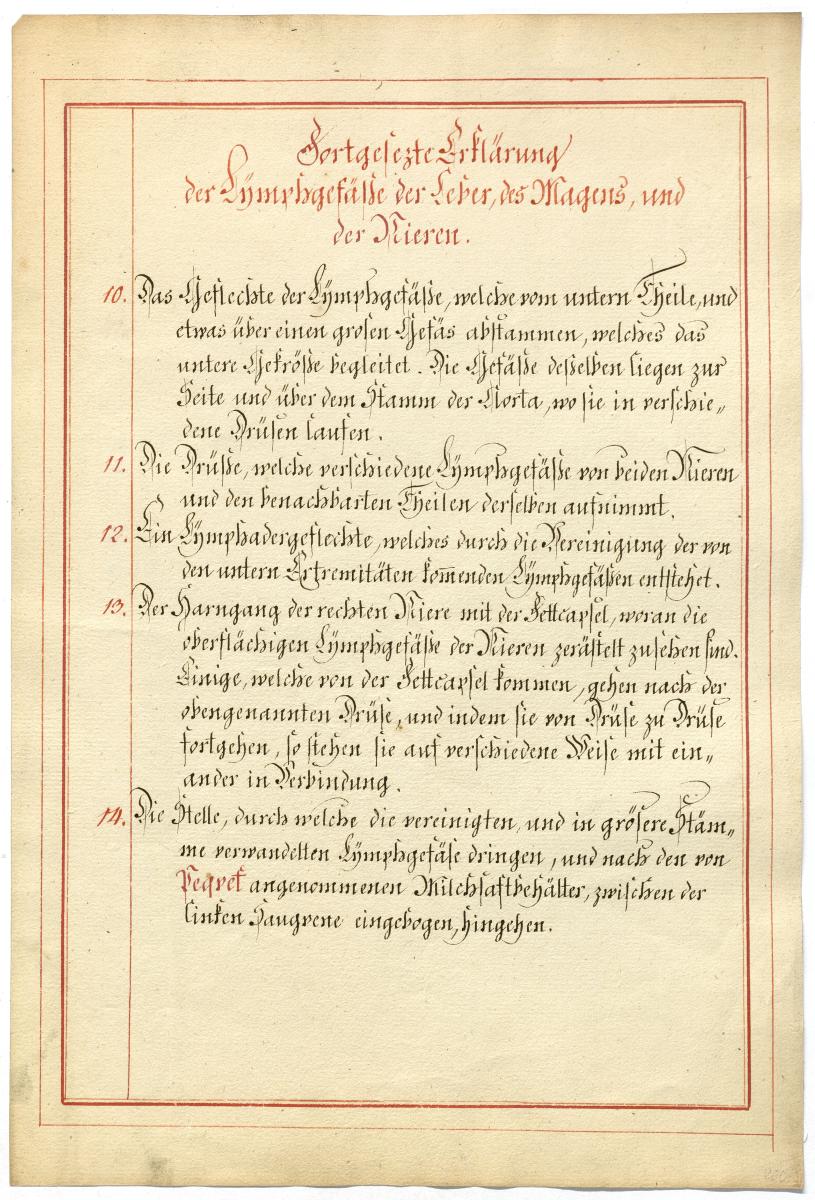 Fortgesezte Erklärung
der Lÿmphgefäße der Leber, des Magens, und
der Nieren.
10. Das Geflechte der Lÿmphgefäße, welche vom untern Theile, und
etwas über einen grosen Gefäs abstammen, welches das
untere Gekröße begleitet. Die Gefäße desselben liegen zur
Seite und über dem Stamm der Aorta, wo sie in verschie„
dene Drüsen laufen.
11. Die Drüße, welche verschiedene Lÿmphgefäße von beiden Nieren
und den benachbarten Theilen derselben aufnimmt.
12. Ein Lÿmphadergeflechte, welches durch die Vereinigung der von
den untern Extremitäten kom̅enden Lÿmphgefäßen entstehet.
13. Der Harngang der rechten Niere mit der Fettcapsel, woran die
oberflächigen Lÿmphgefäße der Nieren zerästelt zusehen sind.
Einige, welche von der Fettcapsel kommen, gehen nach der
obengenannten Drüse, und indem sie von Drüse zu Drüse
fortgehen, so stehen sie auf verschiedene Weise mit ein„
ander in Verbindung.
14. Die Stelle, durch welche die vereinigten, und in grösere Stäm„
me verwandelten Lÿmphgefäse dringen, und nach den von
Peqvet angenommenen Milchsaftbehälter, zwischen der
linken Saugvene eingebogen, hingehen.